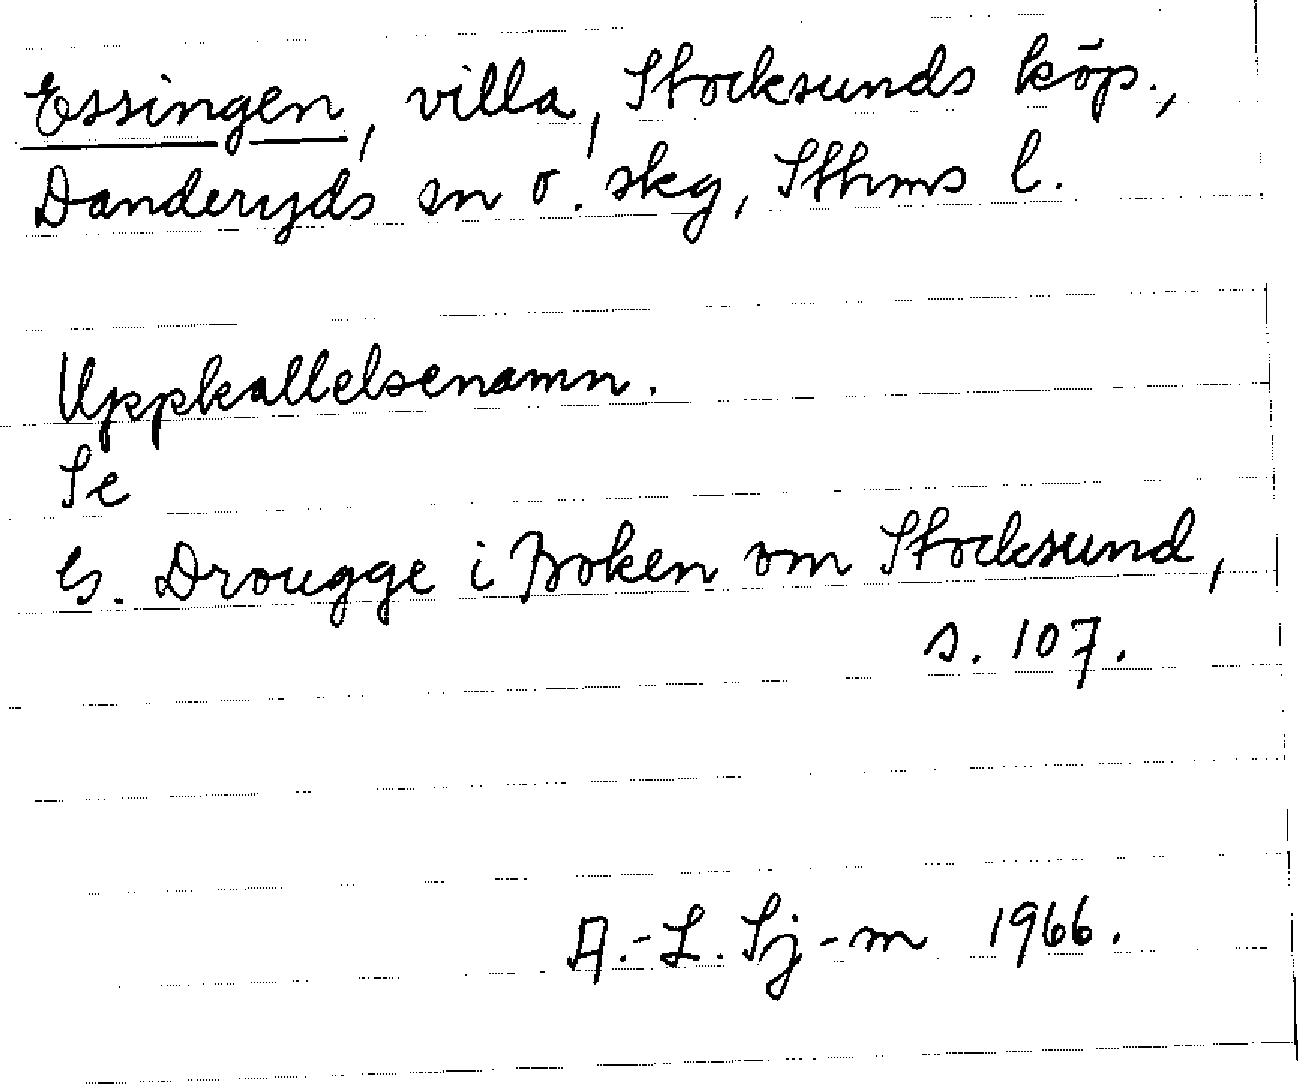 Essingen, villa, Stocksunds köp.,
Danderyds sn o. skg, Sthms l.
Uppkallelsenamn.
Se
G. Drougge i Boken om Stocksund,
s. 107.
A.-L. Sj-m 1966.